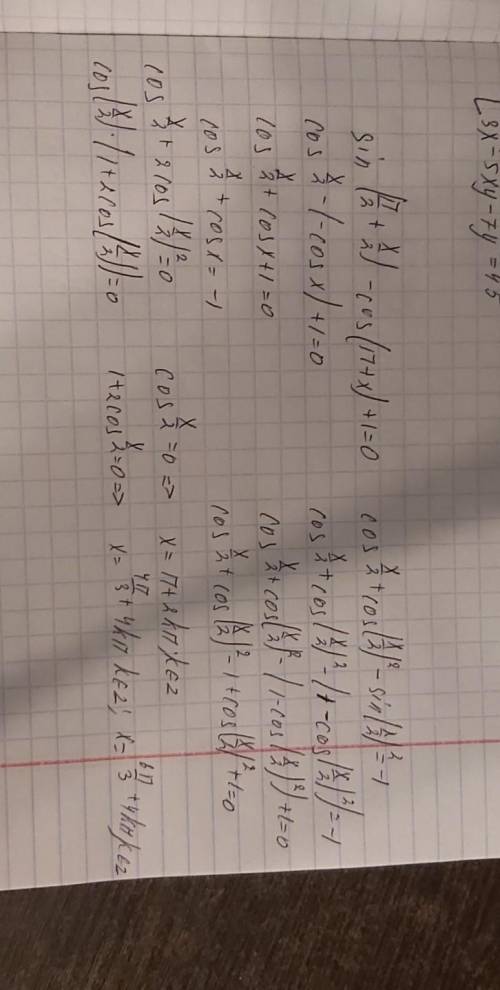 3x - 5xy - 7y = 45
sin(π/2 + x/2) - cos(π+x) + 1 = 0
cos x/2 - (-cos x) + 1 = 0
cos x/2 + cos x + 1 = 0
cos x/2 + cos x = -1
cos x/2 + cos(x/2)² - sin(x/2)² = -1
cos x/2 + cos(x/2)² - (1 - cos(x/2)²) = -1
cos x/2 + cos(x/2)² - (1 - cos(x/2)²) + 1 = 0
cos x/2 + cos(x/2)² - 1 + cos(x/2)² + 1 = 0
cos x/2 + 2cos(x/2)² = 0
cos(x/2) · (1 + 2cos(x/2)) = 0
cos x/2 = 0 => x = π + 2kπ, k∈Z
1 + 2cos x/2 = 0 => x = 4π/3 + 4kπ, k∈Z; x = 8π/3 + 4kπ, k∈Z